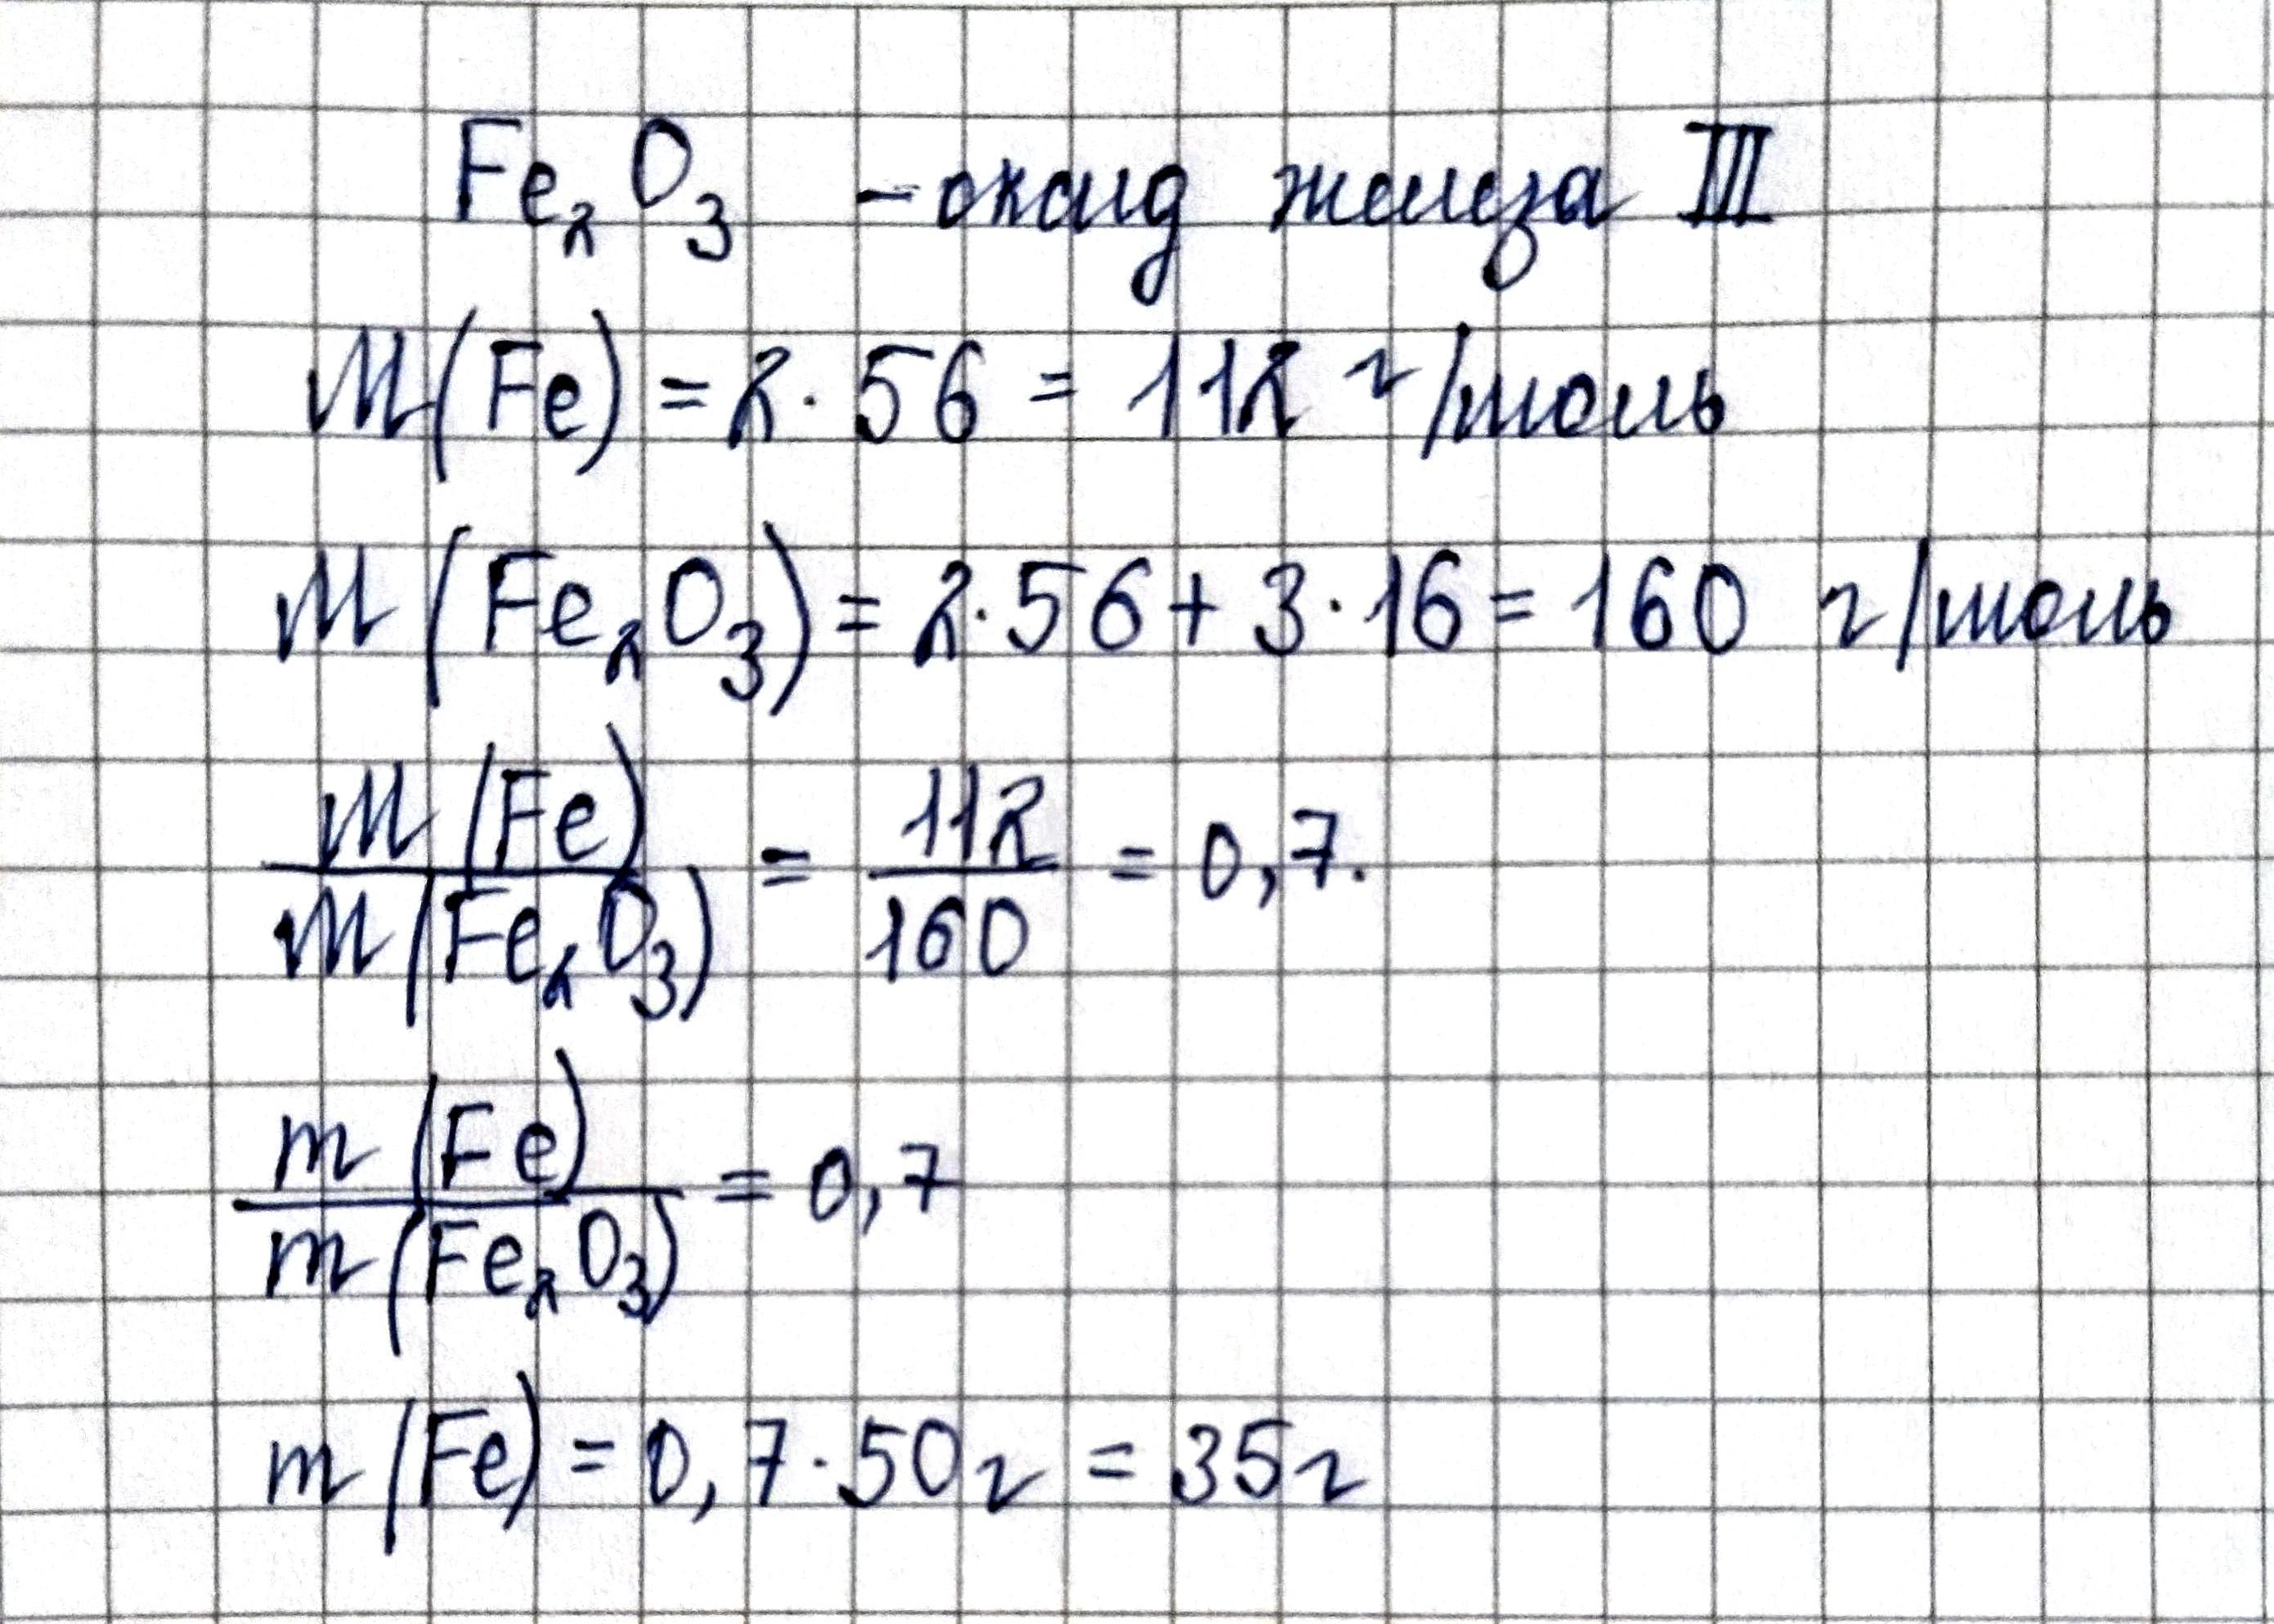 Fe₂O₃ – оксид железа III
M(Fe) = 2·56 = 112 г/моль
M(Fe₂O₃) = 2·56 + 3·16 = 160 г/моль
M(Fe)/M(Fe₂O₃) = 112/160 = 0,7.
m(Fe)/m(Fe₂O₃) = 0,7
m(Fe) = 0,7·50г = 35г